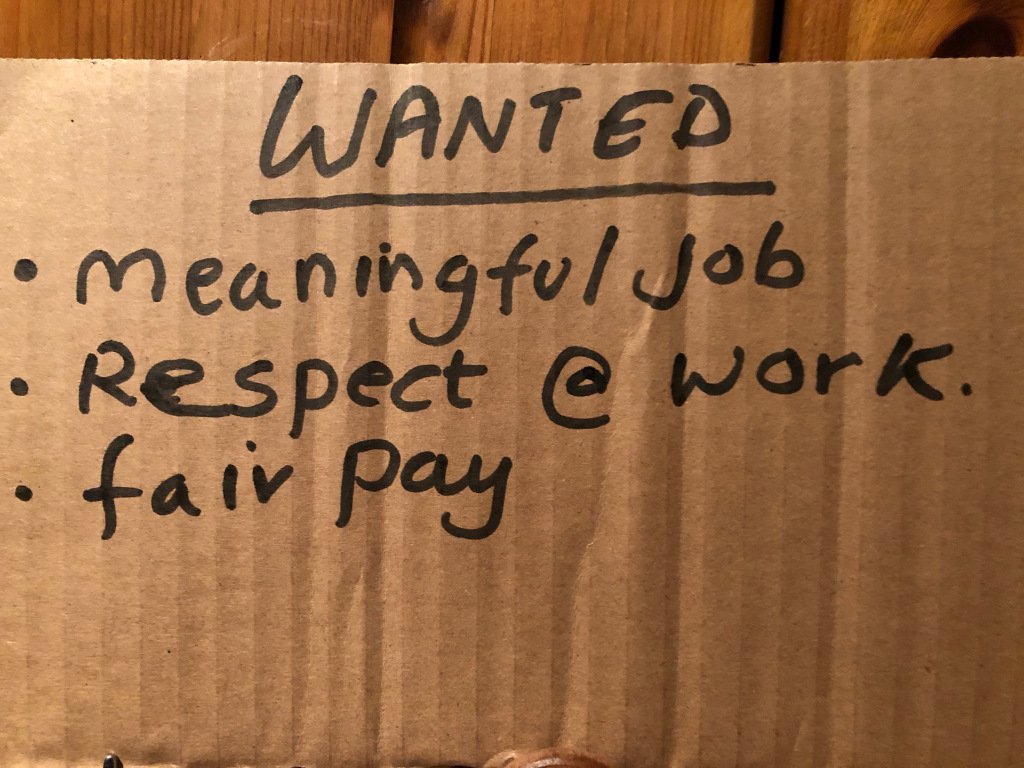 WANTED
• Meaningful Job
• Respect @ work.
• fair pay